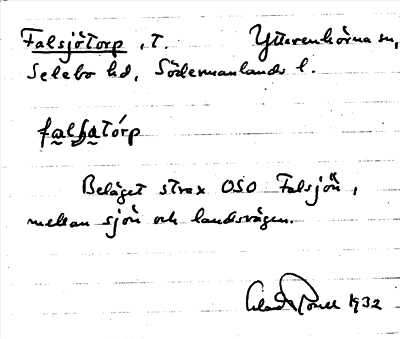 Falsjötorp, T. Ytterenhörna sn,
Selebo hd, Södermanlands l.
falʃatórp
Beläget strax OSO Falsjön,
mellan sjön och landsvägen.
1932